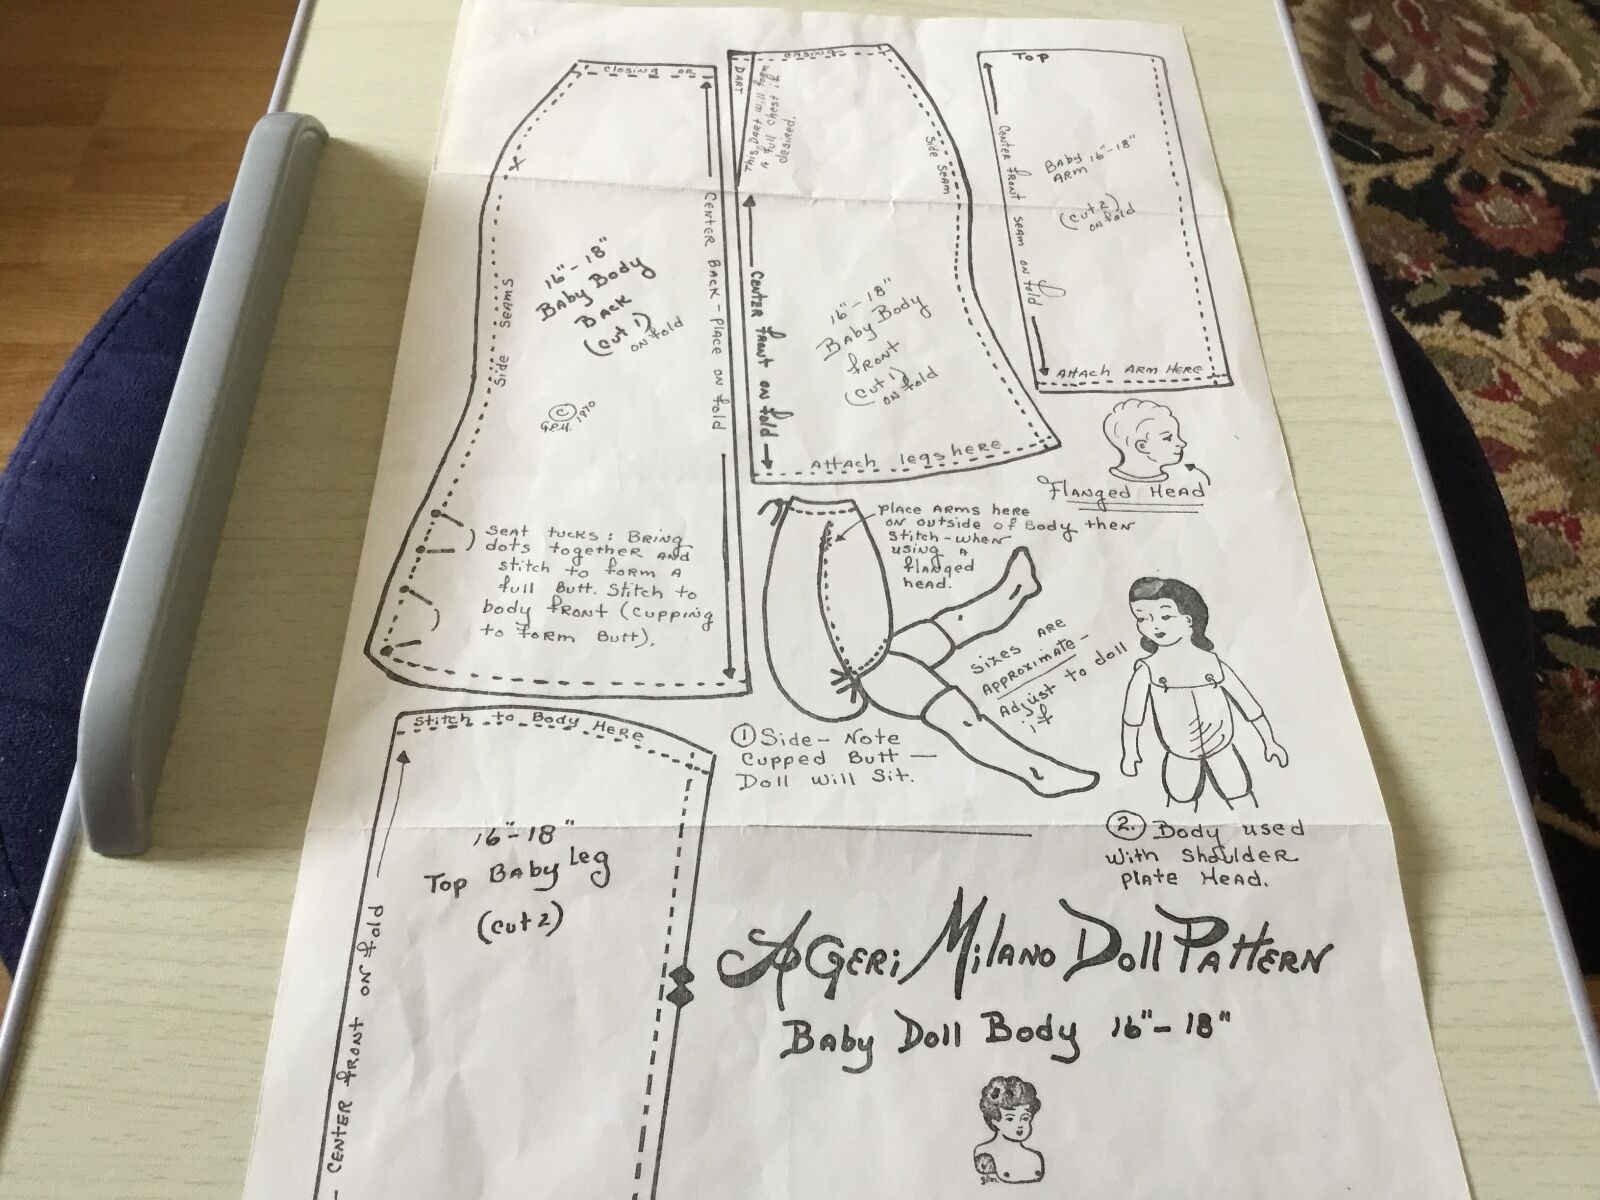 CLOSING OR
CASING
X
Side SEAMS
16"-18"
BABY BODY
BACK
(CUT 1)
ON fold
© 1970
G.P.M.
CENTER BACK - PLACE ON fold
SEAT TUCKS: BRING
dots together AND
stitch to form A
full Butt. Stitch to
body front (Cupping
to form Butt).
DART
This DART will form
A full chest if
desired.
Side SEAM
CENTER front ON fold
16"-18"
BABY Body
front
(CUT 1)
ON fold
ATTACH legs here
TOP
CENTER FRONT SEAM ON fold
BABY 16"-18"
ARM
(CUT 2)
ON fold
ATTACH ARM HERE
Flanged Head
PLACE ARMS here
ON outside of Body then
Stitch-when
using A
flanged
head.
SIZES ARE
APPROXIMATE-
Adjust to doll
if
① Side- Note
Cupped Butt-
Doll Will Sit.
②. Body used
With Shoulder
plate Head.
Stitch to Body HERE
16"-18"
TOP BABY Leg
(CUT 2)
- CENTER FRONT ON fold
A GERI MILANO DOLL PATTERN
Baby Doll Body 16"-18"